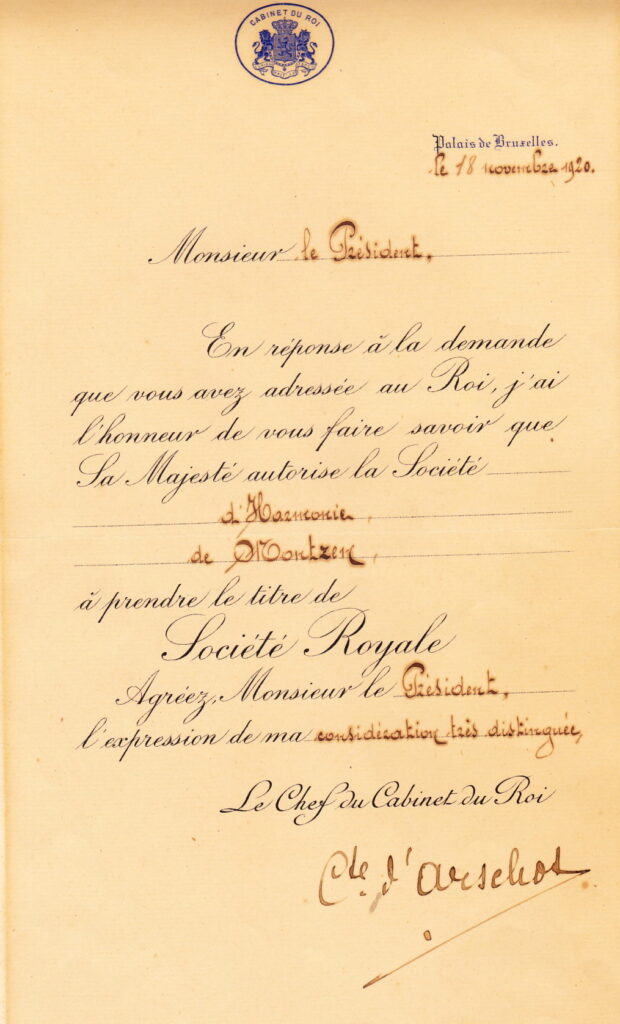 CABINET DU ROI
Palais de Bruxelles.
le 18 novembre 1920.
Monsieur le Président,
En réponse à la demande
que vous avez adressée au Roi, j'ai
l'honneur de vous faire savoir que
Sa Majesté autorise la Société
d'Harmonie,
de Montzen,
à prendre le titre de
Société Royale
Agréez, Monsieur le Président,
l'expression de ma considération très distinguée,
Le Chef du Cabinet du Roi
Cte d'Arschot